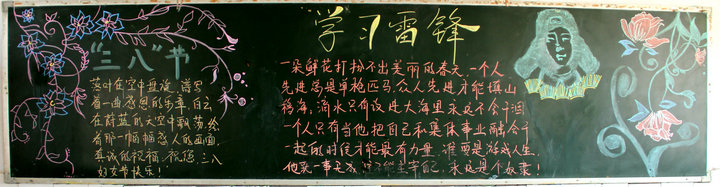 "三八"节
落叶在空中盘旋，谱写
着一曲感恩的乐章，白云
在蔚蓝的天空中飘荡，绘
着那一幅幅感人的画面，
真诚的祝福，祝您三八
妇女节快乐！
学习雷锋
一朵鲜花打扮不出美丽的春天，一个人
先进总是单枪匹马，众人先进才能移山
移海；滴水只有放进大海里永远不会干涸，
一个人只有当他把自己和集体事业融合于
一起的时候才能最有力量，谁要是游戏人生，
他就一事无成，谁不能主宰自己，永远是个奴隶！